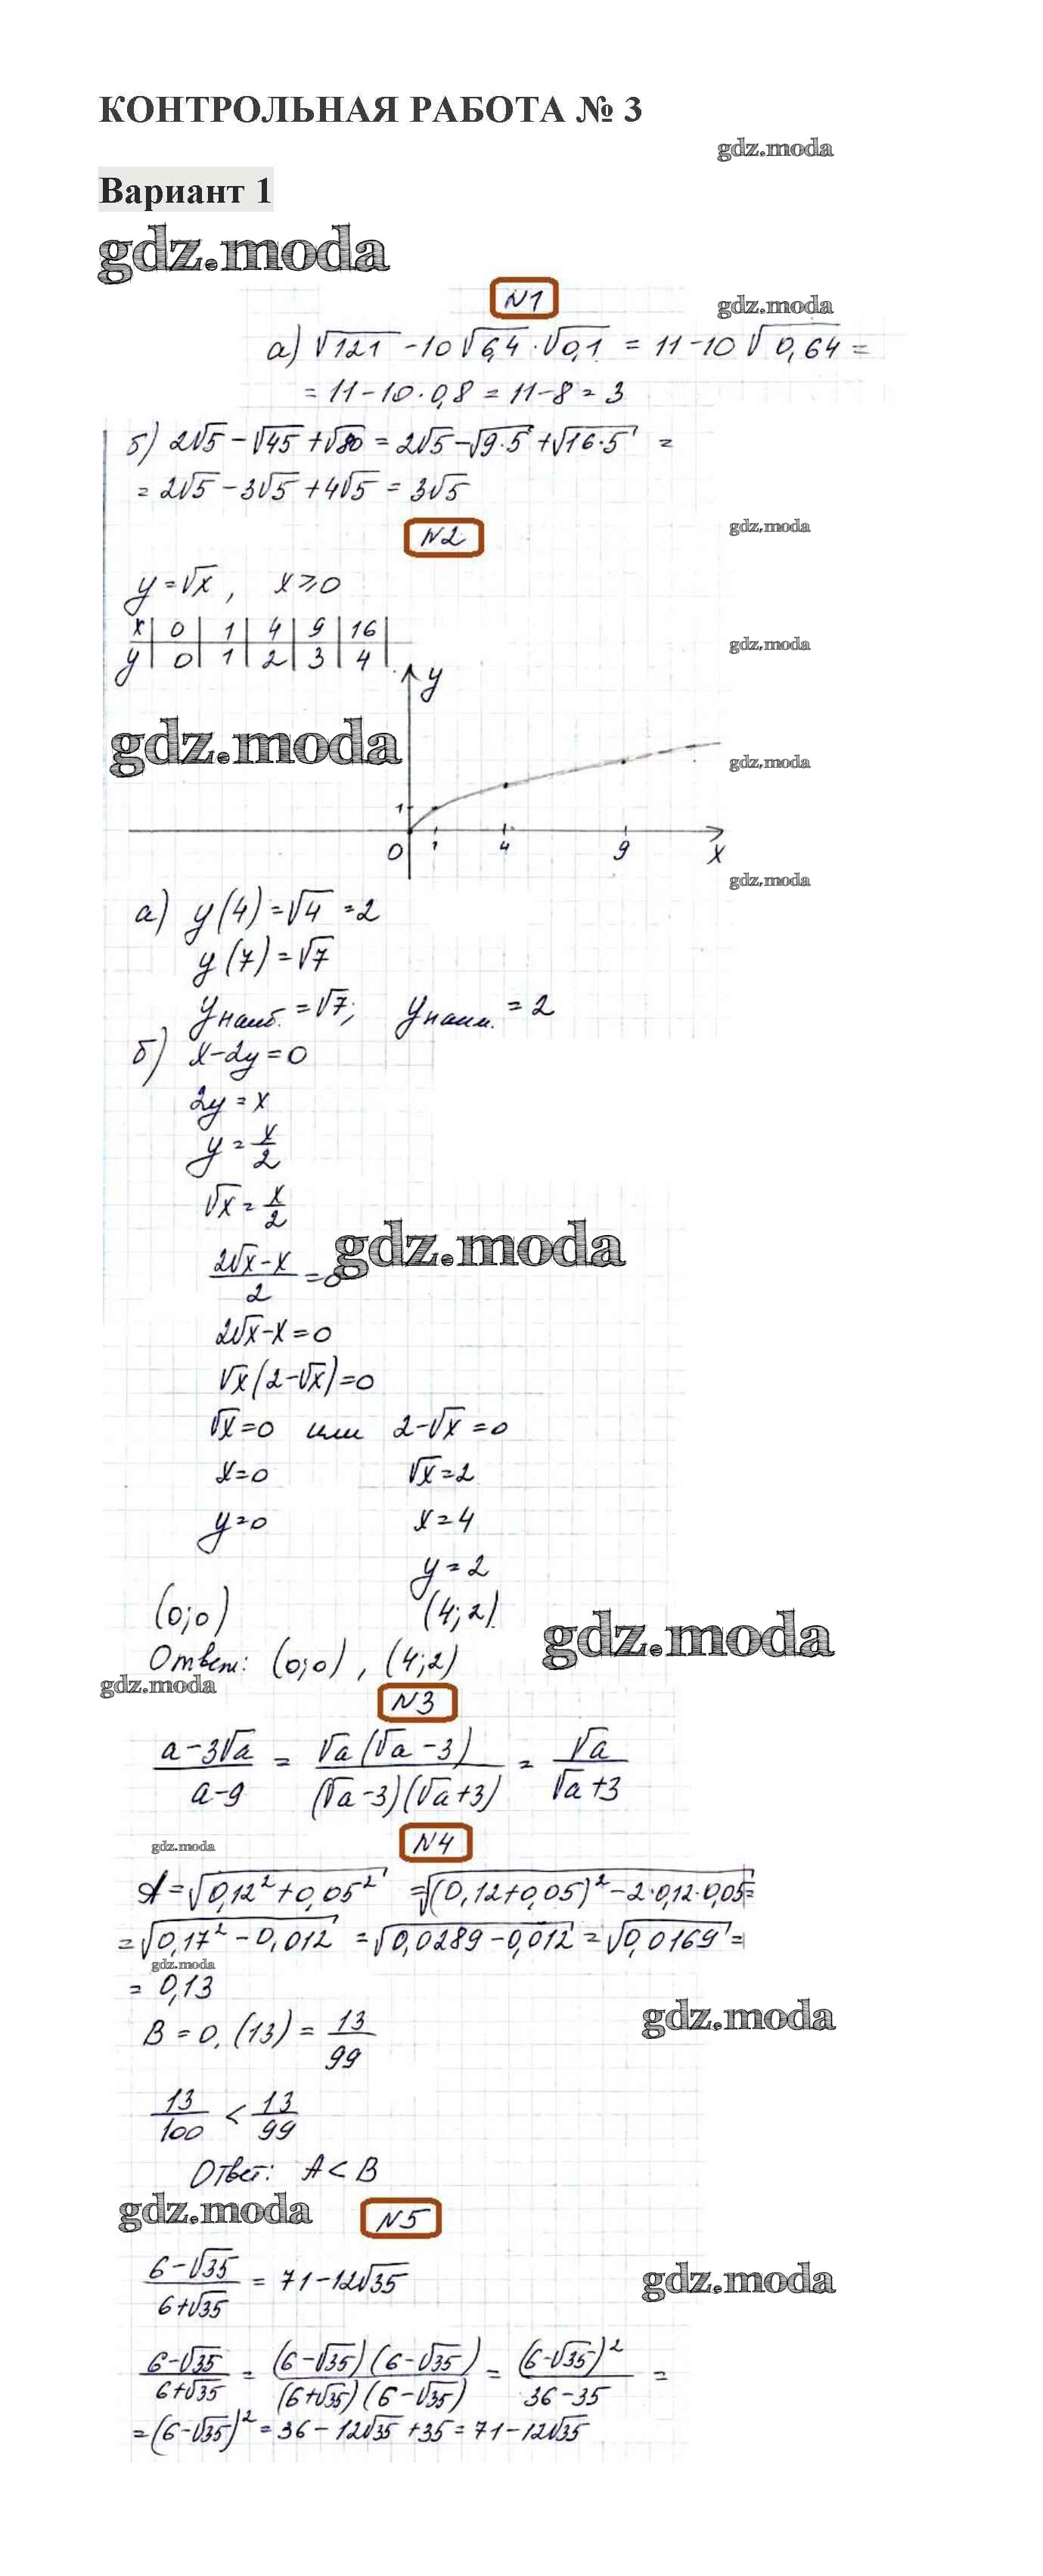 КОНТРОЛЬНАЯ РАБОТА № 3
gdz.moda
Вариант 1
gdz.moda
N1
gdz.moda
а) √121 - 10√6,4 · √0,1 = 11 - 10√0,64 =
= 11 - 10 · 0,8 = 11 - 8 = 3
б) 2√5 - √45 + √80 = 2√5 - √9·5 + √16·5 =
= 2√5 - 3√5 + 4√5 = 3√5
N2
gdz.moda
y = √x , x ≥ 0
x | 0 | 1 | 4 | 9 | 16 |
y | 0 | 1 | 2 | 3 | 4 |
gdz.moda
y
gdz.moda
gdz.moda
1
0 1 4 9 x
gdz.moda
а) y(4) = √4 = 2
y(7) = √7
yнаиб. = √7; yнаим. = 2
б) x - 2y = 0
2y = x
y = x/2
√x = x/2
gdz.moda
(2√x - x)/2 = 0
2√x - x = 0
√x(2 - √x) = 0
√x = 0 или 2 - √x = 0
x = 0 √x = 2
y = 0 x = 4
y = 2
(0;0) (4;2)
gdz.moda
Ответ: (0;0), (4;2)
gdz.moda
N3
(a - 3√a)/(a - 9) = (√a(√a - 3))/((√a - 3)(√a + 3)) = √a/(√a + 3)
gdz.moda
N4
A = √(0,12² + 0,05²) = √((0,12 + 0,05)² - 2·0,12·0,05) =
= √(0,17² - 0,012) = √(0,0289 - 0,012) = √0,0169 =
gdz.moda
= 0,13
gdz.moda
B = 0,(13) = 13/99
13/100 < 13/99
Ответ: A < B
gdz.moda
N5
(6 - √35)/(6 + √35) = 71 - 12√35
gdz.moda
(6 - √35)/(6 + √35) = ((6 - √35)(6 - √35))/((6 + √35)(6 - √35)) = (6 - √35)²/(36 - 35) =
= (6 - √35)² = 36 - 12√35 + 35 = 71 - 12√35